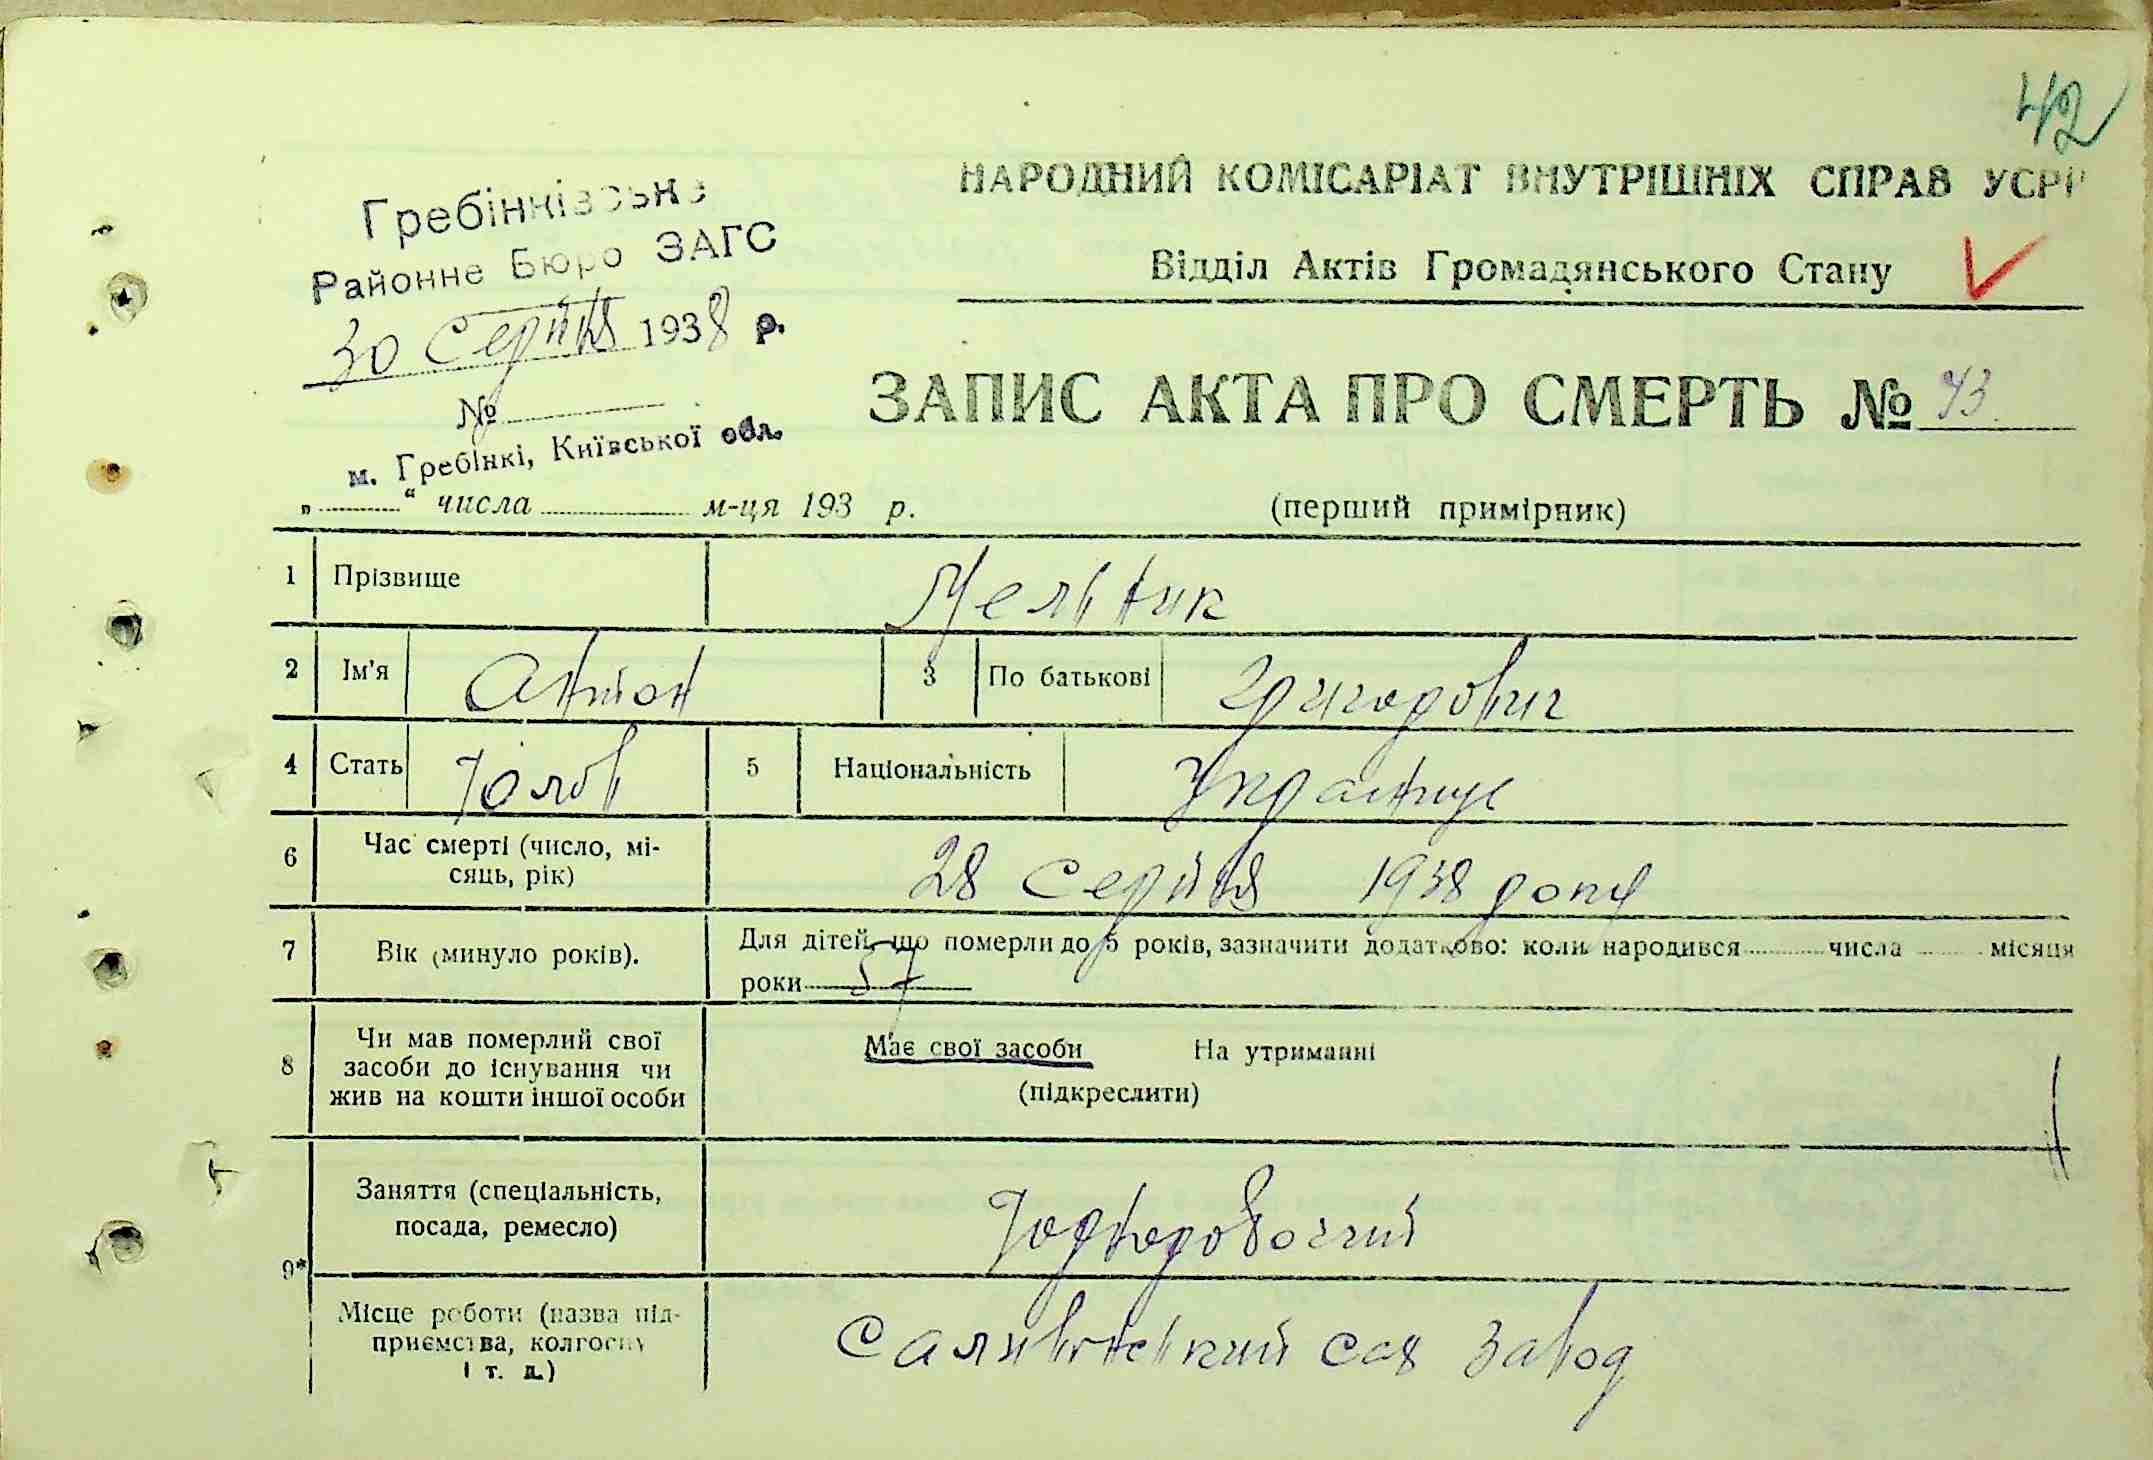 42
НАРОДНИЙ КОМІСАРІАТ ВНУТРІШНІХ СПРАВ УСРР
Відділ Актів Громадянського Стану
Гребінківське
Районне Бюро ЗАГС
30 Серпня 1938 р.
№
м. Гребінкі, Київської обл.
ЗАПИС АКТА ПРО СМЕРТЬ № 43
„ “ числа м-ця 193 р.
(перший примірник)
1 Прізвище Мельник
2 Ім'я Антон 3 По батькові Григорович
4 Стать Чолов 5 Національність Українец
6 Час смерті (число, мі-
сяць, рік) 28 Серпня 1938 року
7 Вік (минуло років). Для дітей, що померли до 5 років, зазначити додатково: коли народився числа місяця
роки 57
8 Чи мав померлий свої
засоби до існування чи
жив на кошти іншої особи
Має свої засоби На утриманні
(підкреслити)
9* Заняття (спеціальність,
посада, ремесло) Чорноробочий
Місце роботи (назва під-
приємства, колгоспу
і т. д.) Саливонський сах завод